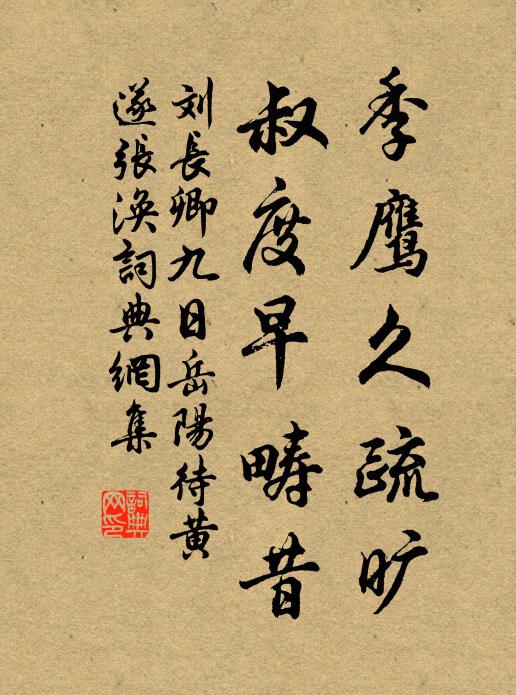 季鹰久疏旷
叔度早畴昔
刘長卿九日岳陽待黄
遂張涣詞典網集
詞典網印